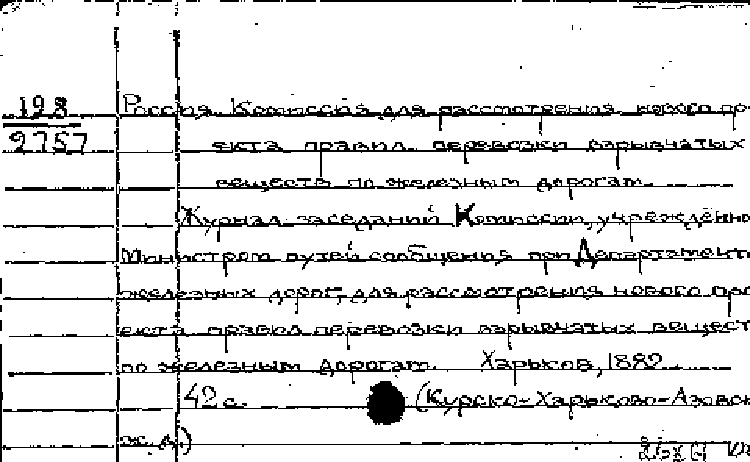 198
2757
Россия. Комиссия для рассмотрения нового про
екта правил перевозки взрывчатых
веществ по железным дорогам.
Журнал заседаний Комиссии, учреждённо
Министром путей сообщения при Департаменте
железных дорог, для рассмотрения нового про
екта правил перевозки взрывчатых вещест
по железным дорогам. Харьков, 1889.
42 с. (Курско-Харьково-Азовск
ж. д.)